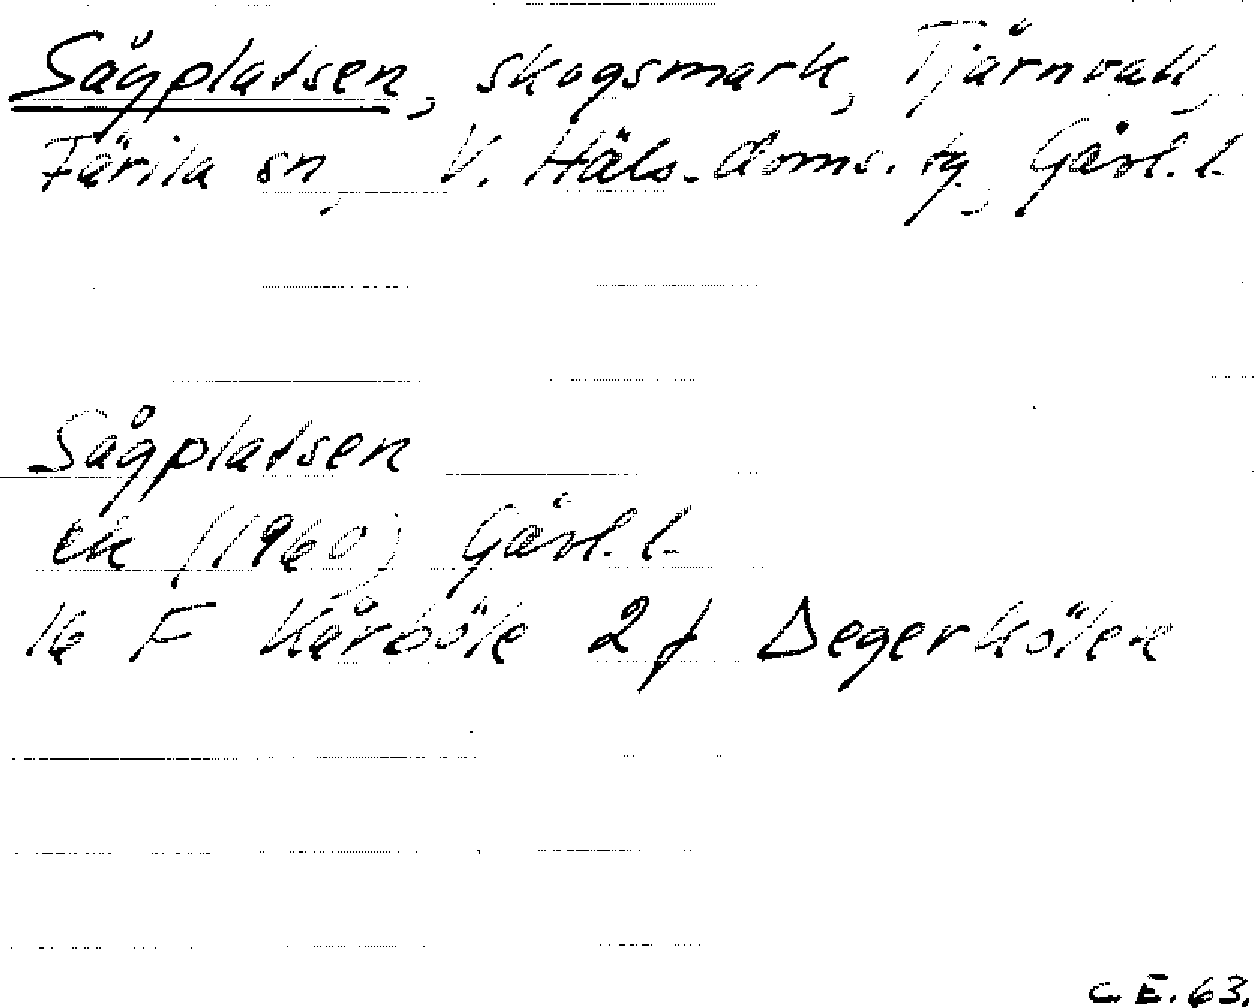 Sågplatsen, skogsmark, Tjärnvall,
Färila sn, V. Häls. doms. tg, Gävl. l.
Sågplatsen
ek (1960) Gävl. l.
16 F Kårböle 2 f Degerkölen
C. E. 63.